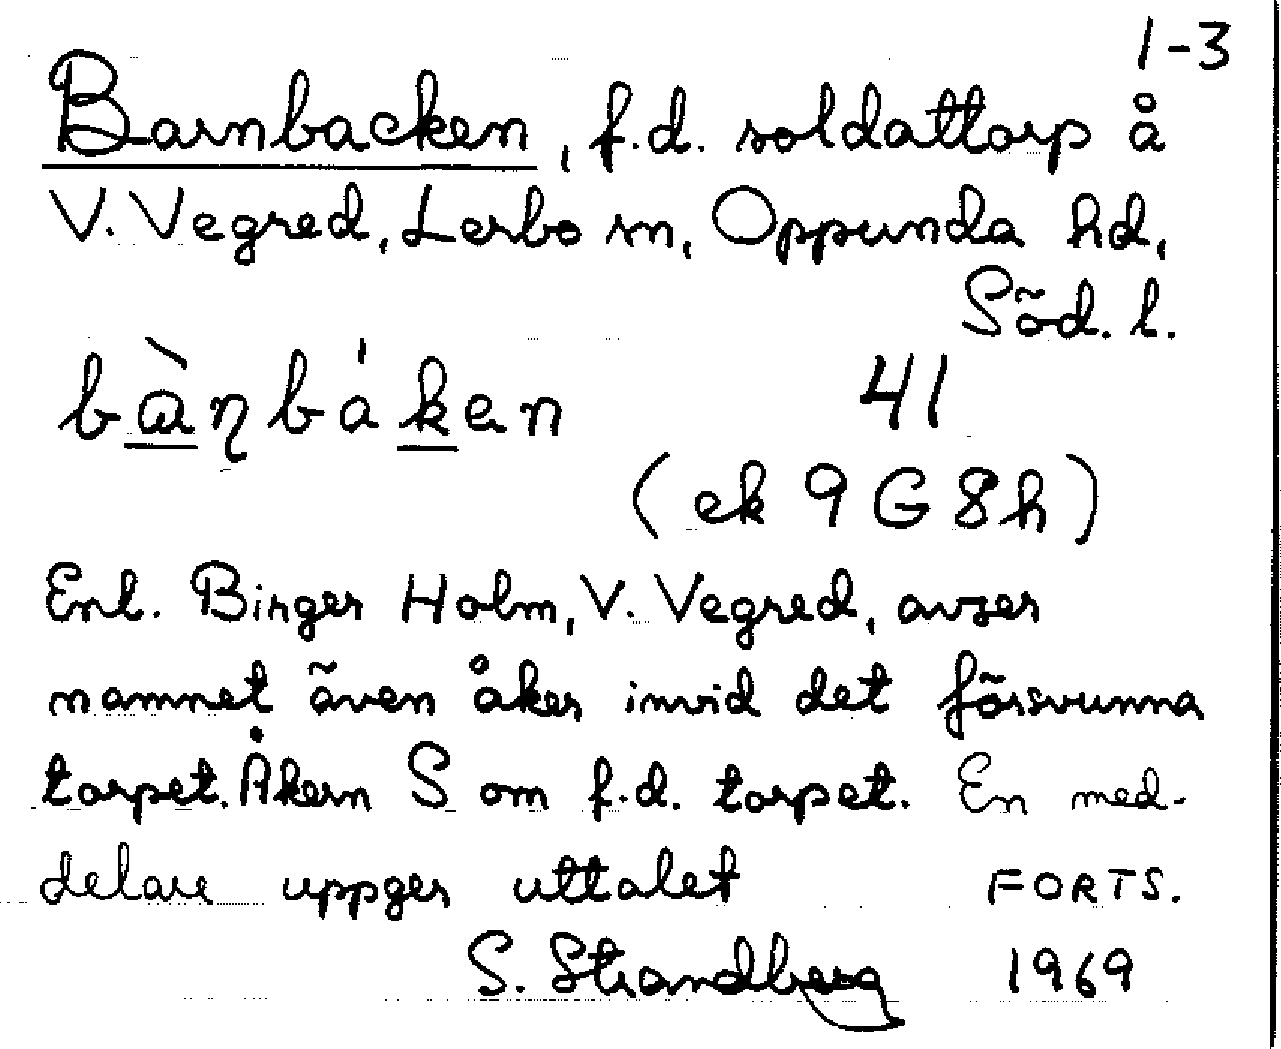 1-3
Barnbacken, f.d. soldattorp å
V. Vegred, Lerbo sn, Oppunda hd,
Söd. l.
bàɳbáken 41
(ek 9G8h)
Enl. Birger Holm, V. Vegred, avser
namnet även åker invid det försvunna
torpet. Åkern S om f.d. torpet. En med-
delare uppger uttalet FORTS.
S. Strandberg 1969